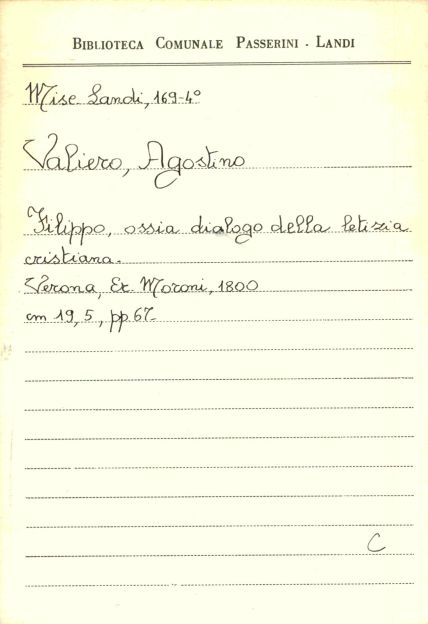 BIBLIOTECA COMUNALE PASSERINI - LANDI
Misc. Landi, 169-4°
Valiero, Agostino
Filippo, ossia dialogo della letizia
cristiana.
Verona, Er. Moroni, 1800
cm 19,5, pp. 67.
C